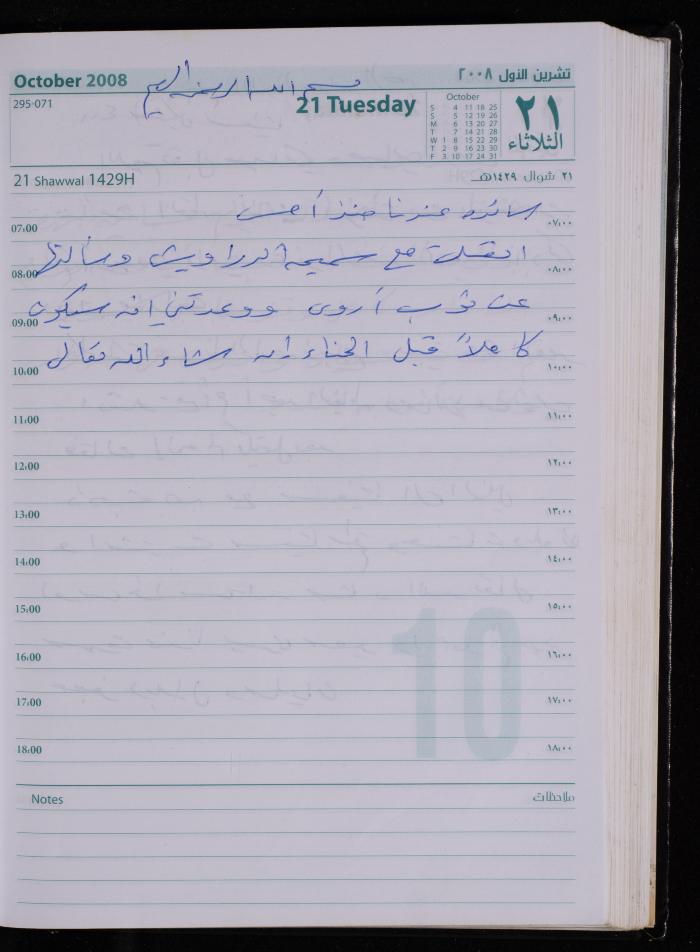 October 2008
تشرين الأول ٢٠٠٨
بسم الله الرحمن الرحيم
295-071
21 Tuesday
October
S 4 11 18 25
S 5 12 19 26
M 6 13 20 27
T 7 14 21 28
W 1 8 15 22 29
T 2 9 16 23 30
F 3 10 17 24 31
٢١
الثلاثاء
21 Shawwal 1429H
٢١ شوال ١٤٢٩هـ
سائده عندنا منذ أمس
07:00 ٠٧:٠٠
اتصلت مع سميحه الدراويش وسألتها
08:00 ٠٨:٠٠
عن ثوب أروى ووعدتني انه سيكون
09:00 ٠٩:٠٠
كاملاً قبل الحناء إن شاء الله تعالى
10:00 ١٠:٠٠
11:00 ١١:٠٠
12:00 ١٢:٠٠
13:00 ١٣:٠٠
14:00 ١٤:٠٠
15:00 ١٥:٠٠
16:00 ١٦:٠٠
17:00 ١٧:٠٠
18:00 ١٨:٠٠
10
Notes
ملاحظات